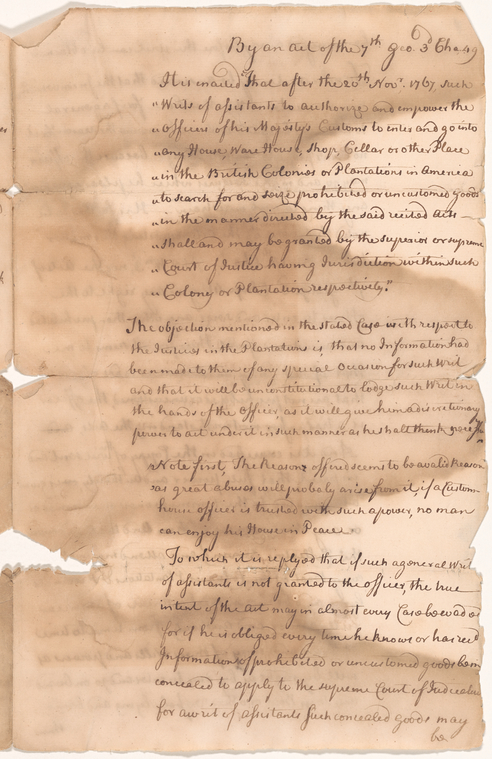 By an act of the 7th Geo. 3d Cha 49
It is enacted That after the 20th Novr. 1767 such
"Writs of assistants to authorize and empower the
"Officers of his Majestys Customs to enter and go into
"any House Ware House, Shop, Cellar or other Place
"in the British Colonies or Plantations in America
"to search for and seize prohibited or uncustomed goods
"in the manner directed by the said recited acts —
"shall and may be granted by the superior or supreme
"Court of Justice having Jurisdiction within such
"Colony or Plantation respectively."
The objection mentioned in the stated Case with respect to
the Justices in the Plantations is, that no Information had
been made to them of any special Occasion for such Writ
and that it will be unconstitutional to lodge such Writ in
the hands of the Officer, as it will give him a discretionary
power to act under it in such manner as he shall think
Note first, The Reason offered seems to be a valid Reason
as great abuses will probaly arise from it, if a Custom
house officer is trusted with such a power, no man
can enjoy his House in Peace.
To which it is replyed that if such a general Writ
of assistants is not granted to the officer, the true
intent of the act may in almost every Case be evaded
for if he is obliged every time he knows or has recd
Information of prohibited or uncustomed goods being
concealed to apply to the supreme Court of
for a writ of assistants Such concealed goods may
be